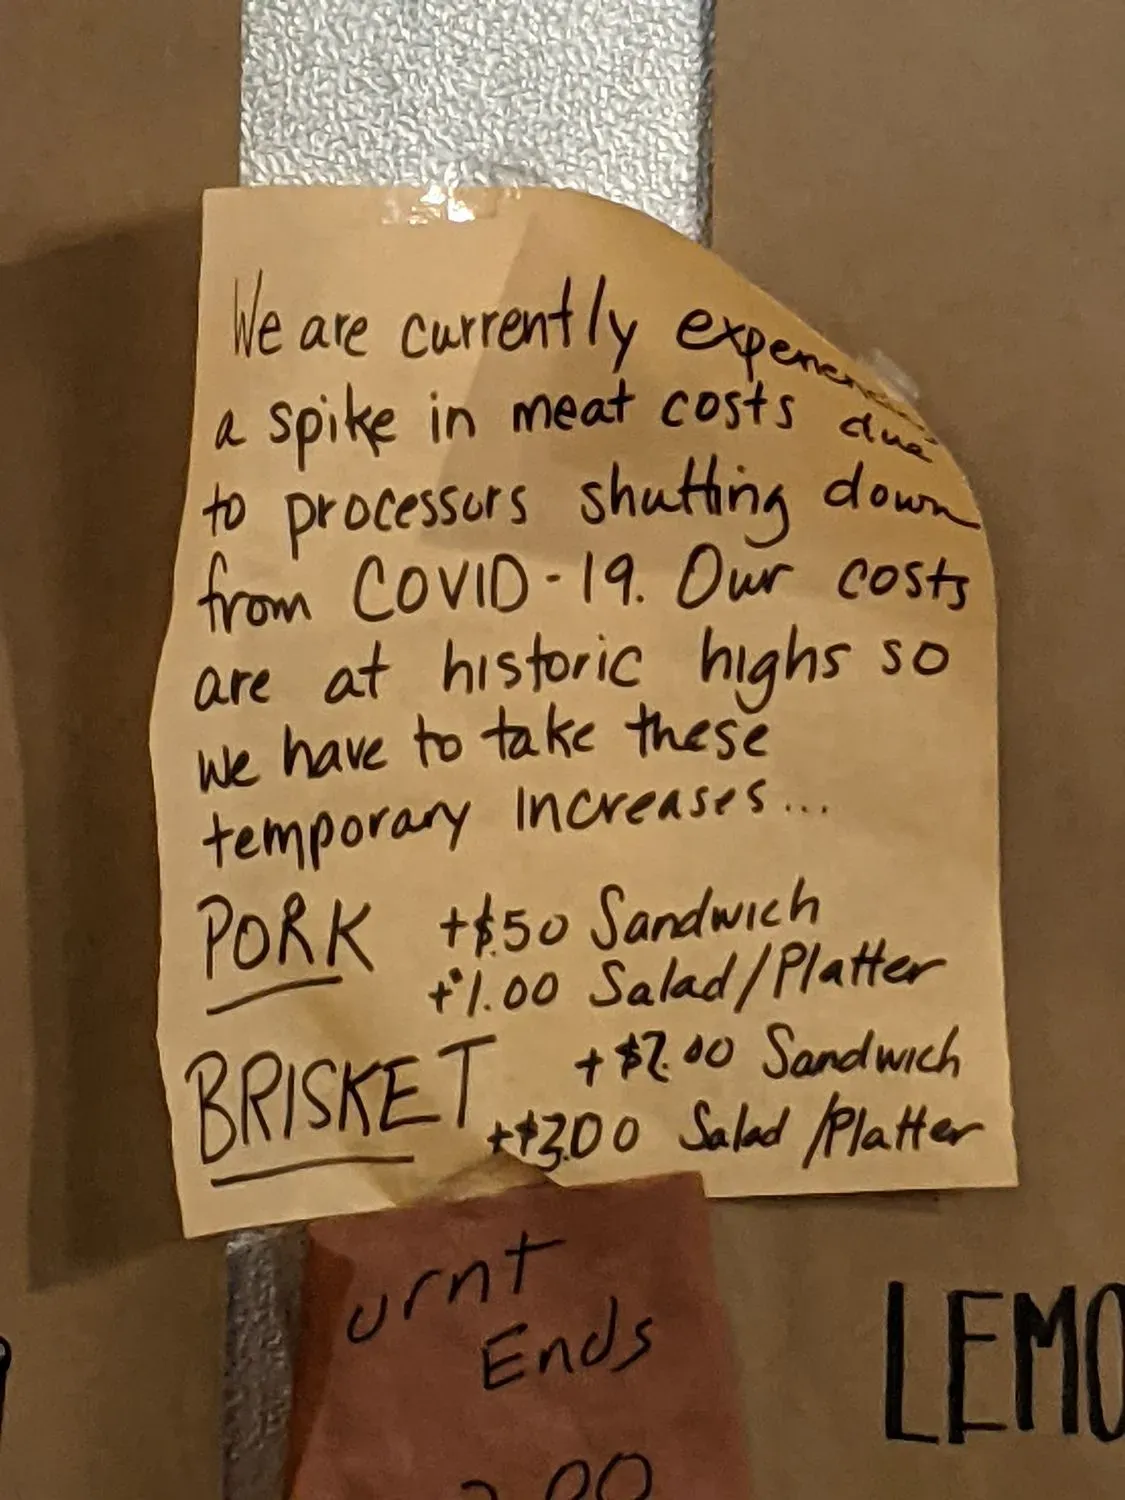 We are currently
a spike in meat costs due
to processors shutting down
from COVID-19. Our costs
are at historic highs so
we have to take these
temporary increases...
PORK +$.50 Sandwich
+$1.00 Salad/Platter
BRISKET +$2.00 Sandwich
+$3.00 Salad/Platter
urnt
Ends
.00
LEMO